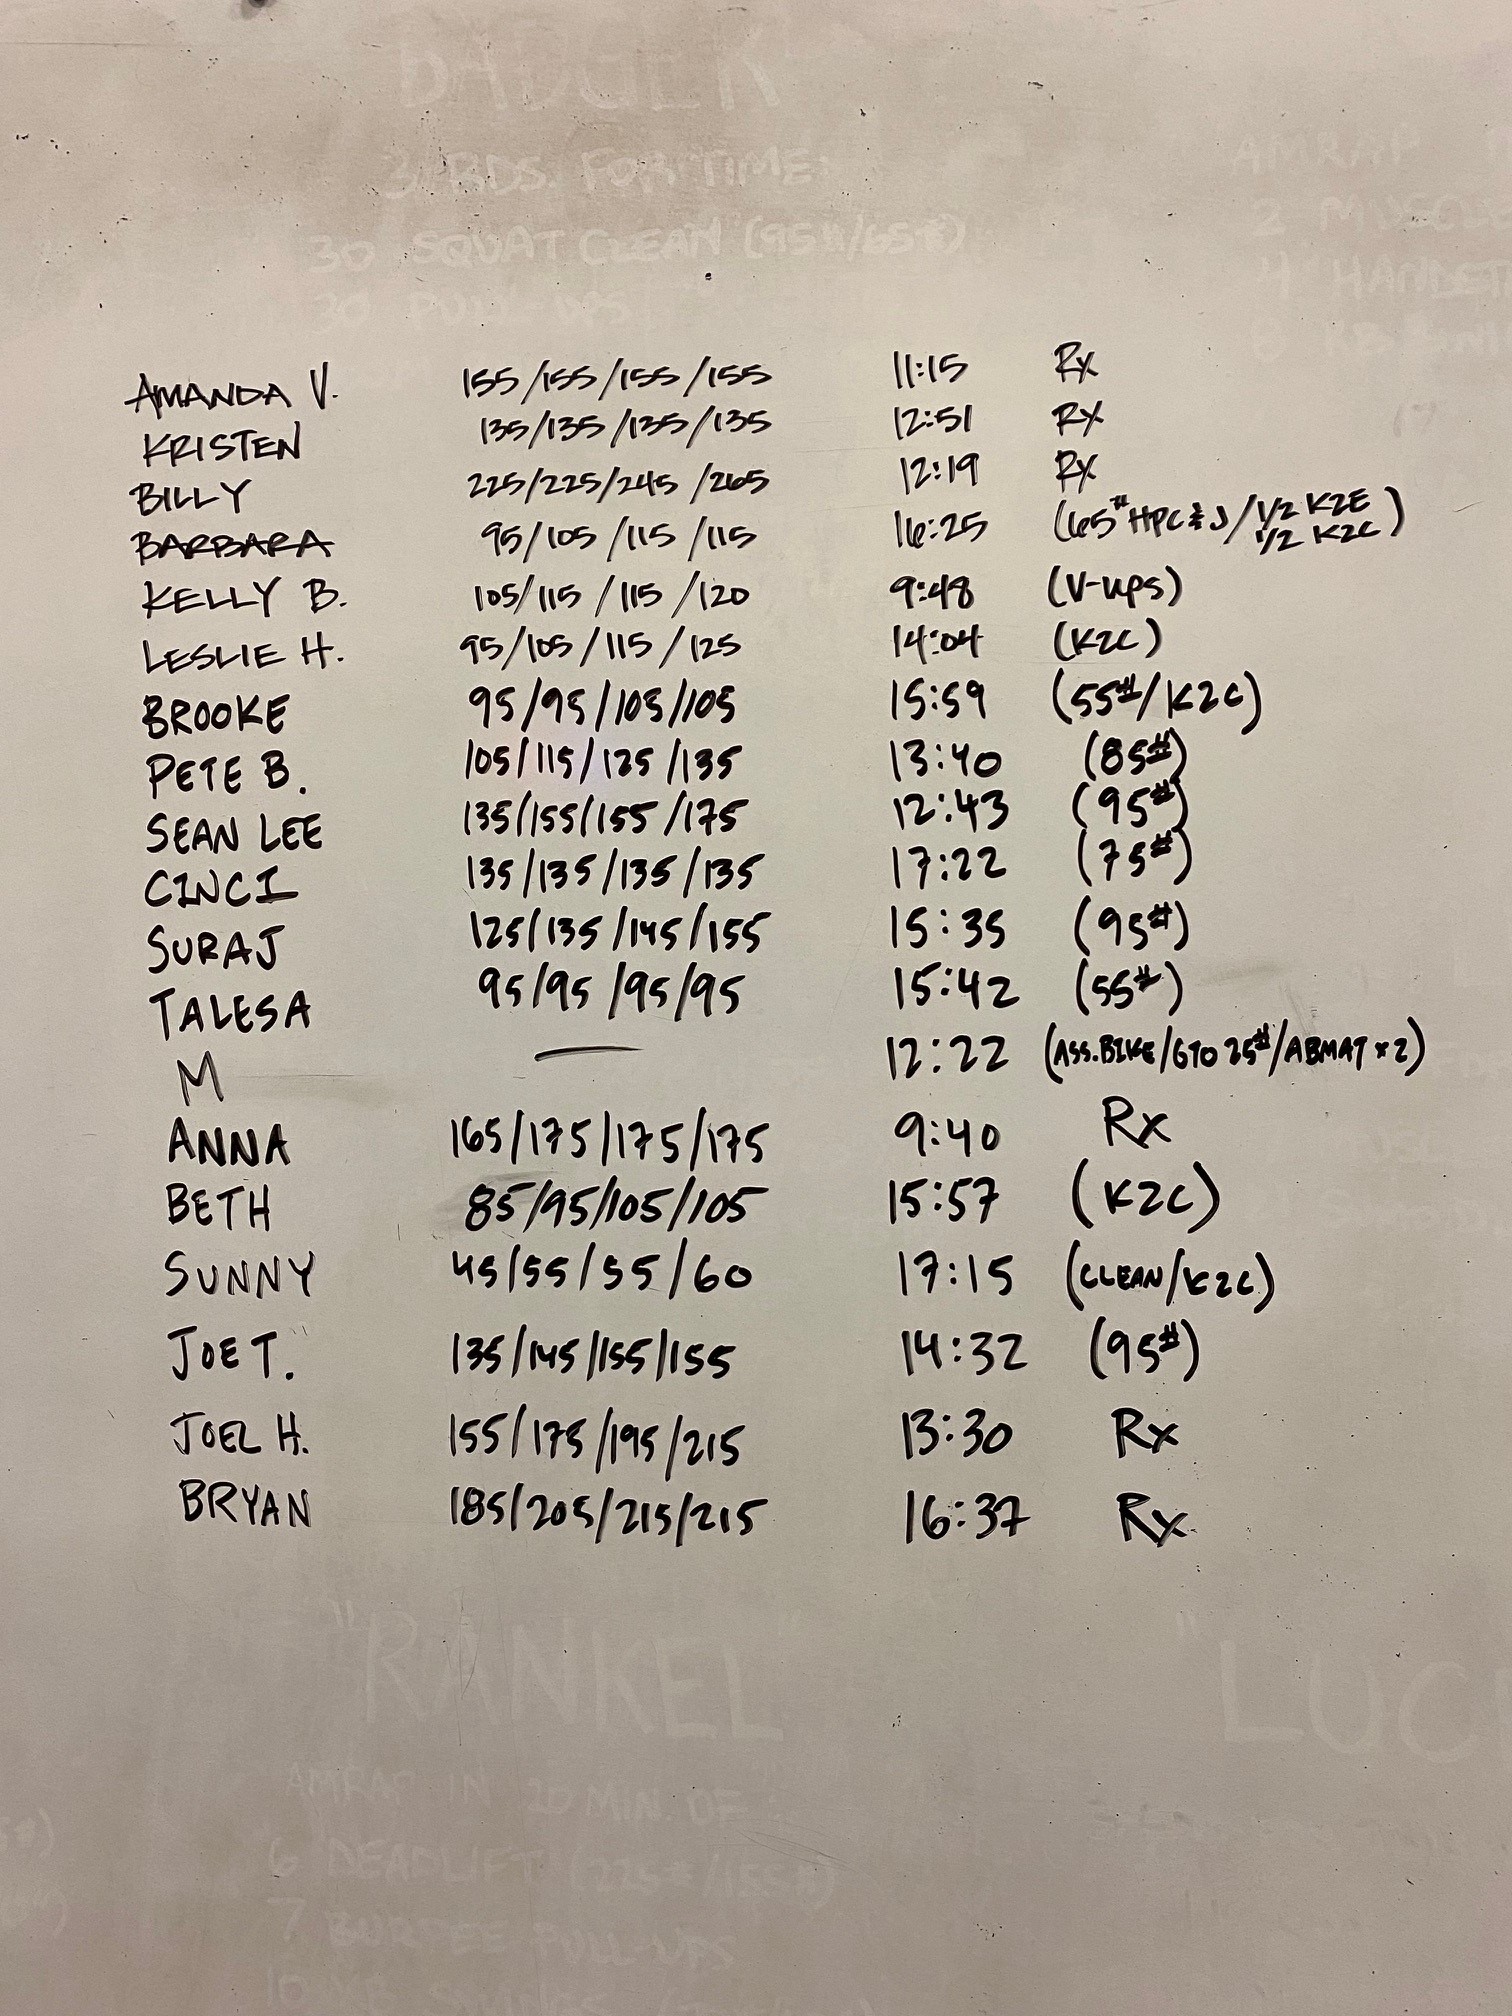 BADGER
3 RDS. FOR TIME:
30 SQUAT CLEAN (95#/65#)
30 PULL-UPS
AMRAP
2 MUSCLE
4 HANDST
8 KB SWI
AMANDA V. 155/155/155/155 11:15 Rx
KRISTEN 135/135/135/135 12:51 Rx
BILLY 225/225/245/265 12:19 Rx
BARBARA 95/105/115/115 16:25 (65# HPC & J/ 1/2 K2E
1/2 K2C)
KELLY B. 105/115/115/120 9:48 (V-UPS)
LESLIE H. 95/105/115/125 14:04 (K2C)
BROOKE 95/95/105/105 15:59 (55#/K2C)
PETE B. 105/115/125/135 13:40 (85#)
SEAN LEE 135/155/155/175 12:43 (95#)
CINCI 135/135/135/135 17:22 (75#)
SURAJ 125/135/145/155 15:35 (95#)
TALESA 95/95/95/95 15:42 (55#)
M — 12:22 (ASS.BIKE/GTO 25#/ABMAT x 2)
ANNA 165/175/175/175 9:40 Rx
BETH 85/95/105/105 15:57 (K2C)
SUNNY 45/55/55/60 17:15 (CLEAN/K2C)
JOE T. 135/145/155/155 14:32 (95#)
JOEL H. 155/175/195/215 13:30 Rx
BRYAN 185/205/215/215 16:37 Rx
"RANKEL"
"LUC
AMRAP IN 20 MIN. OF:
6 DEADLIFT (225#/155#)
7 BURPEE PULL-UPS
10 KB SWINGS